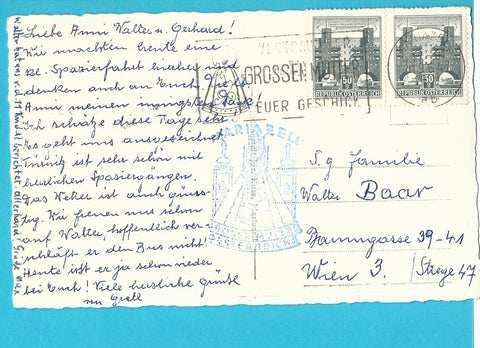 Liebe Anni Walter u. Gerhard!
Wir machten heute eine
kl. Spazierfahrt hierher und
denken auch an Euch, liebe
Anni meinen innigsten Dank!
Ich schätze diese Tage sehr.
Es geht uns ausgezeichnet
ist sehr schön mit
herrlichen Spaziergängen.
Das Wetter ist auch güns-
tig. Wir freuen uns schon
auf Walter, hoffentlich ver-
schläft er den Bus nicht!
Heute ißt er ja schon wieder
bei Euch! Viele herzliche Grüße
Gretl
Walter hat uns
allerhand,
VERTRAU
GROSSEN MUTTER
EUER GESCHICK
50 g
REPUBLIK ÖSTERREICH
50 g
REPUBLIK ÖSTERREICH
MARIAZELL
S. g. Familie
Walter Baar
Baumgasse 39-41
Wien 3. / Stiege 47